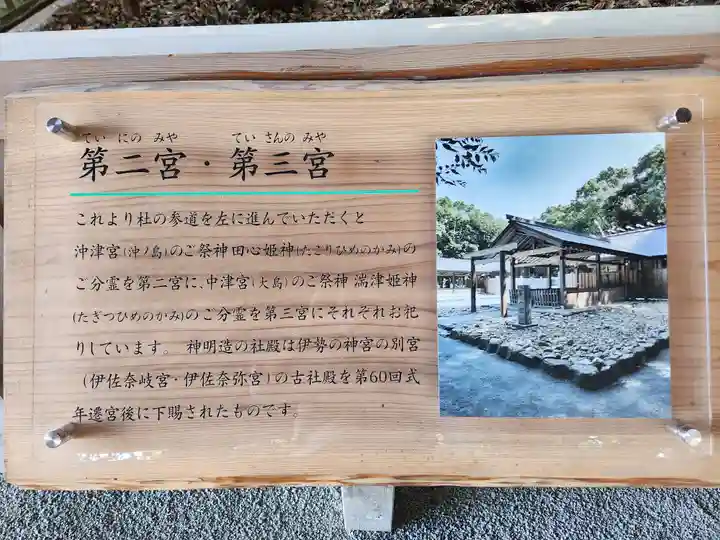 てい にの みや　てい さんの みや
第二宮・第三宮
これより杜の参道を左に進んでいただくと
沖津宮(沖ノ島)のご祭神田心姫神(たごりひめのかみ)の
ご分霊を第二宮に、中津宮(大島)のご祭神 湍津姫神
(たぎつひめのかみ)のご分霊を第三宮にそれぞれお祀
りしています。 神明造の社殿は伊勢の神宮の別宮
（伊佐奈岐宮・伊佐奈弥宮）の古社殿を第60回式
年遷宮後に下賜されたものです。